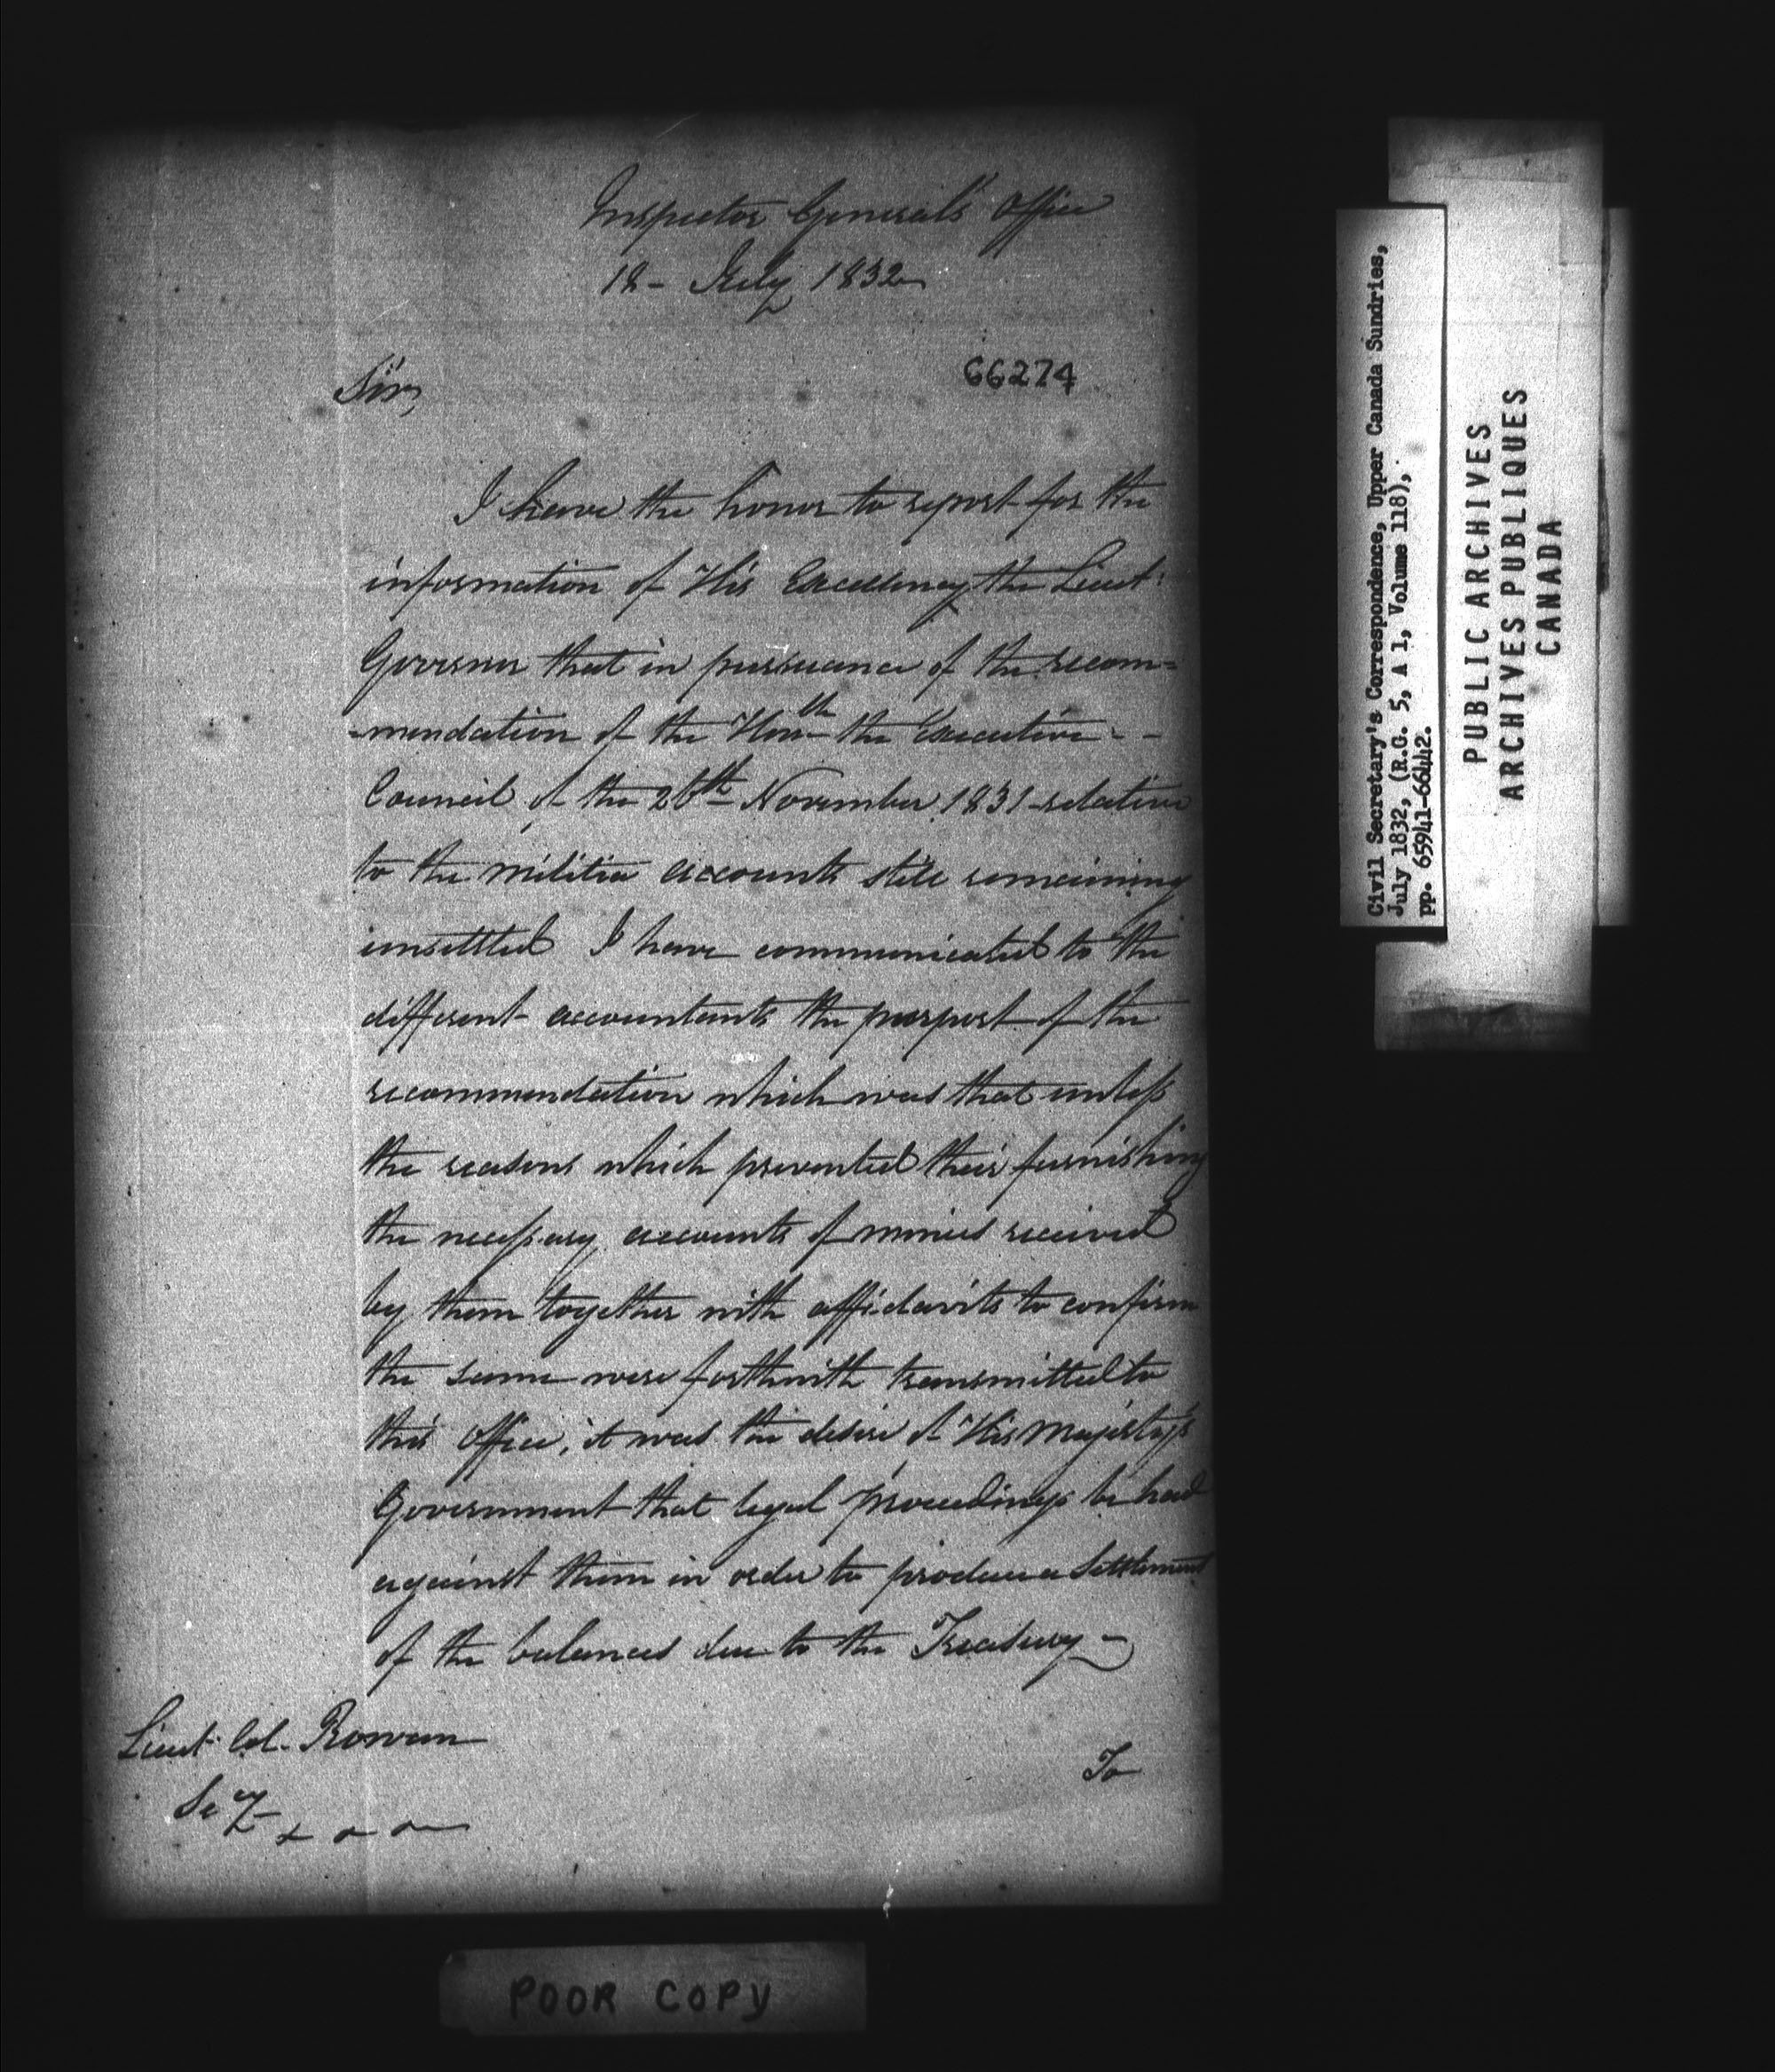 Inspector General's Office
18- July 1832
Sir,
66274
I have the honor to report for the
information of His Excellency the Lieut:
Governor that in pursuance of the recom=
-mendation of the Honble the Executive - -
Council of the 26th November 1831 relative
to the militia accounts still remaining
unsettled I have communicated to the
different accountants the purport of the
recommendation which was that unless
the reasons which prevented their furnishing
the necessary accounts of monies received
by them together with affidavits to confirm
the same were forthwith transmitted to
this Office, it was the desire of His Majesty's
Government that legal proceedings be had
against them in order to produce a Settlement
of the balances due to the Treasury -
Lieut. Col. Rowan
To
Civil Secretary's Correspondence, Upper Canada Sundries,
July 1832, (R.G. 5, A 1, Volume 118),
pp. 65941-66442.
PUBLIC ARCHIVES
ARCHIVES PUBLIQUES
CANADA
POOR COPY